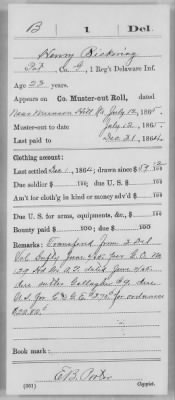 B | 1 | Del.
Henry Bickring
Pvt, Co. G, 1 Reg't Delaware Inf.
Age 23 years.
Appears on Co. Muster-out Roll, dated
Near Munson Hill Va July 12, 1865.
Muster-out to date July 12, 1865.
Last paid to Dec. 31, 1864.
Clothing account:
Last settled Dec 1, 1864; drawn since $ 59 100
Due soldier $ 100; due U.S. $ 100
Am't for cloth'g in kind or money adv'd $ 100
Due U.S. for arms, equipments, &c., $ 100
Bounty paid $ 100; due $ 100
Remarks: Transferred from 2 Del
Vol Infty June
due sutler Gallagher $9. due
U.S. for for ordnance
Book mark:
E B Porter
(361) Copyist.